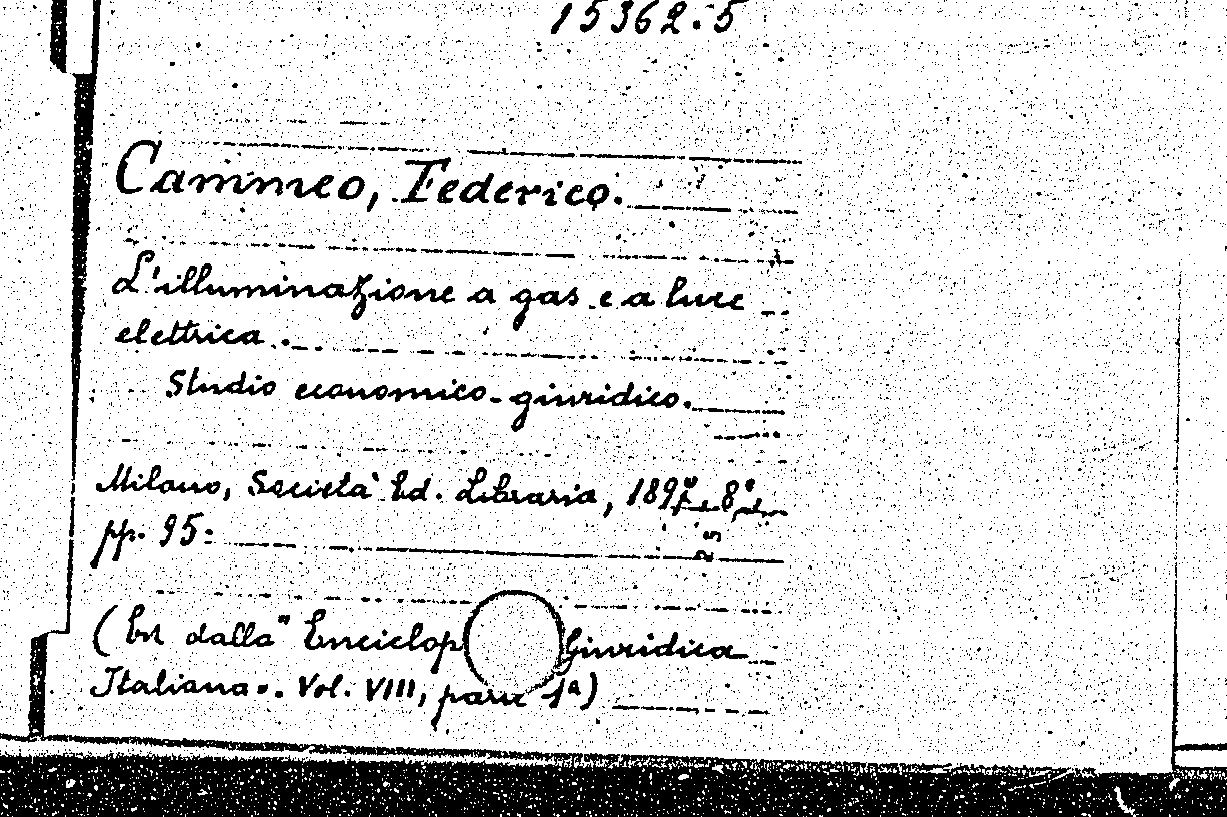 15362.5
Cammeo, Federico.
L'illuminazione a gas e a luce
elettrica.
Studio economico-giuridico.
Milano, Società Ed. Libraria, 189 8°
pp. 95.
25
(Est dalla "Enciclop Giuridica
Italiana". Vol. VIII, parte 1ª)